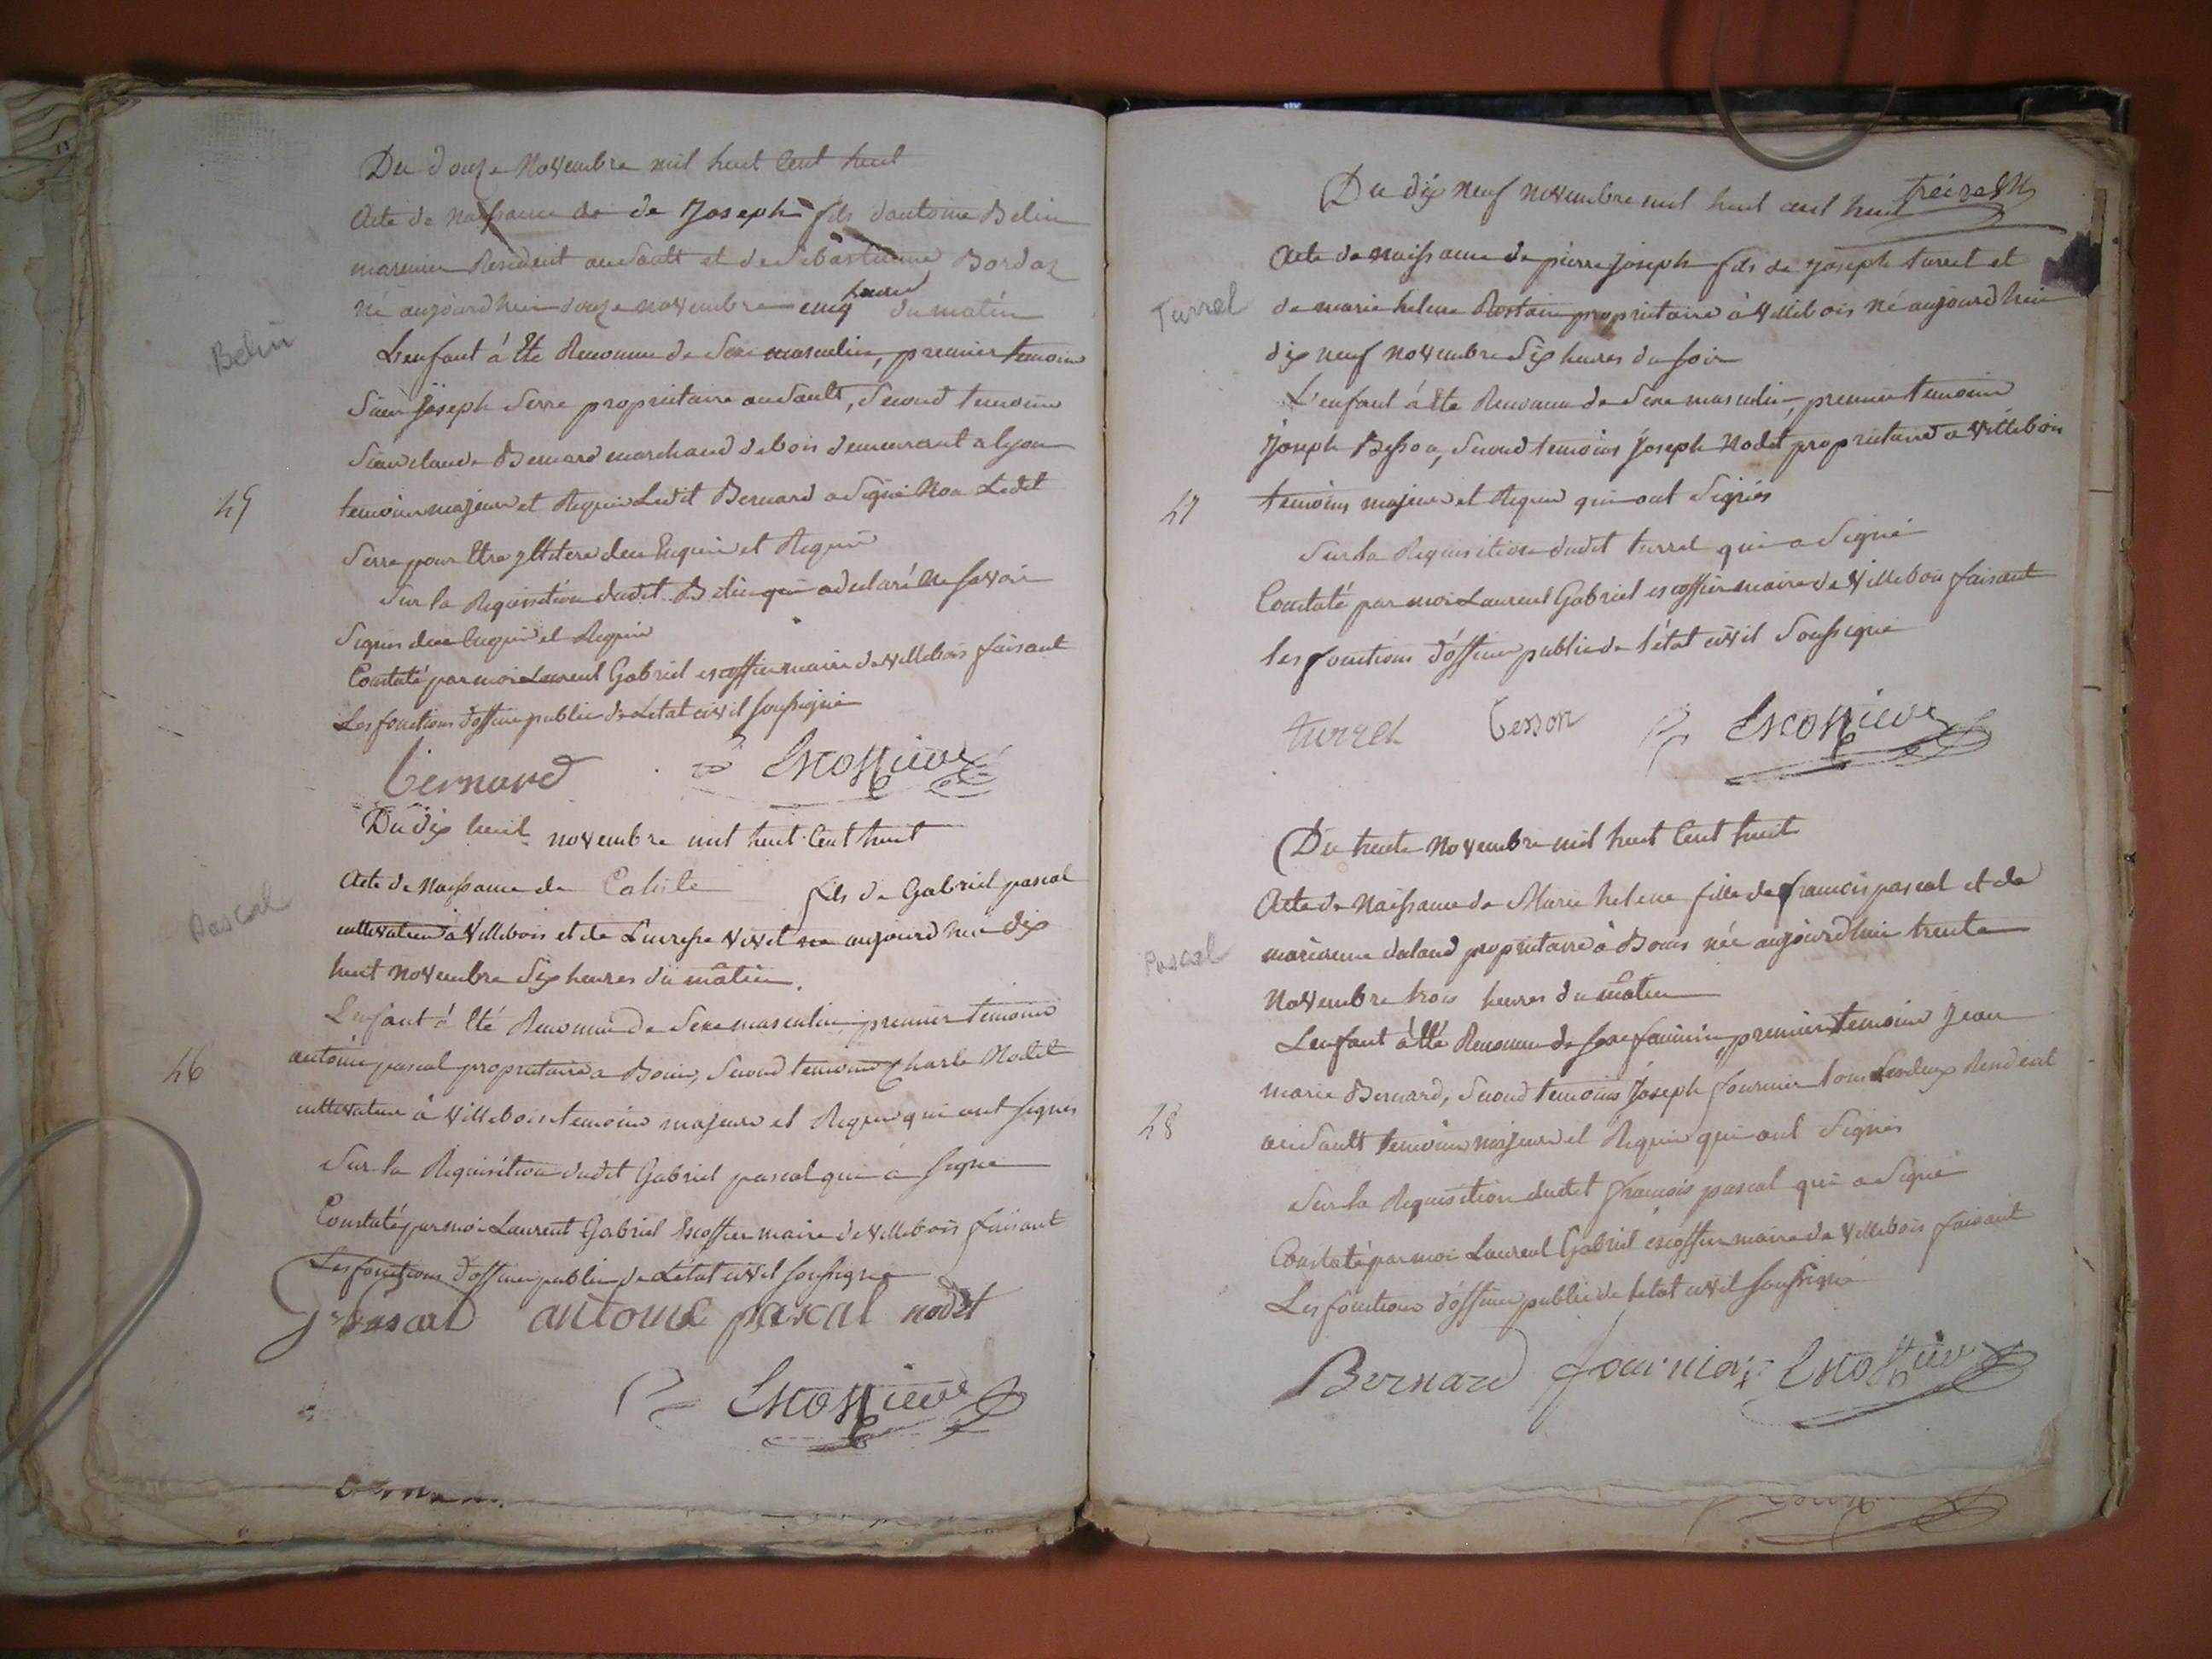 Du douze Novembre mil huit Cent huit
Acte de naissance de de Joseph fils d'antoine Belin
marinier Resident au Sault et de Sebastienne Bordaz
né aujourd'hui douze novembre cinq heures du matin
Belin
L'enfant à Eté Reconnu de Sexe masculin, premier temoin
Sieur Joseph Serre proprietaire au Sault, Second temoin
Sieur claude Bernard marchand de bois demeurant a lyon
45
temoins majeurs et Requis Ledit Bernard a Signé Non Ledit
Serre pour Etre illitere de ce Enquis et Requis
Sur la Requisition dudit Belin qui a declaré Ne Savoir
Signer de ce Enquis et Requis
Constaté par moi Laurent Gabriel escoffier maire de Villebois faisant
Les fonctions d'officier public de L'etat civil Soussigné
bernard Escoffier
Du dix huit novembre mil huit Cent huit
Acte de Naissance de Caliste fils de Gabriel pascal
Pascal
cultivateur à Villebois et de Lucresse Vivet né aujourd'hui dix
huit novembre Six heures du matin.
L'enfant à Eté Reconnu de Sexe masculin premier temoin
antoine pascal proprietaire a Bouis, Second temoin Charle Nodet
46
cultivateur à Villebois temoins majeurs et Requis qui ont Signés
Sur la Requisition dudit Gabriel pascal qui a Signé
Constaté par moi Laurent Gabriel Escoffier maire de Villebois faisant
Les fonctions d'officier public de L'etat civil Soussigné
G pascal antoine pascal nodet
Escoffier
Du dix neuf novembre mil huit cent huit
Acte de Naissance de pierre Joseph fils de Joseph turrel et
Turrel
de marie helene Rostain proprietaire à Villebois né aujourd'hui
dix neuf novembre Six heures du Soir
L'enfant à Eté Reconnu de Sexe masculin, premier temoin
Joseph Besson, Second temoins Joseph Nodet proprietaires a Villebois
47
temoins majeurs et Requis qui ont Signés
Sur la Requisition dudit turrel qui a Signé
Constaté par moi Laurent Gabriel escoffier maire de Villebois faisant
les fonctions d'officier public de l'état civil Soussigné
turrel besson Escoffier
Du trente Novembre mil huit Cent huit
Acte de Naissance de Marie helene fille de francois pascal et de
Pascal
marianne daland proprietaire à Bouis née aujourd'hui trente
Novembre trois heures du matin
L'enfant à Eté Reconnu de Sexe feminin, premier temoin Jean
marie Bernard, Second temoins Joseph fournier tous Les deux Resident
48
au Sault temoins majeurs et Requis qui ont Signés
Sur la Requisition dudit francois pascal qui a Signé
Constaté par moi Laurent Gabriel escoffier maire de Villebois faisant
Les fonctions d'officier public de l'etat civil Soussigné
Bernard fournier Escoffier